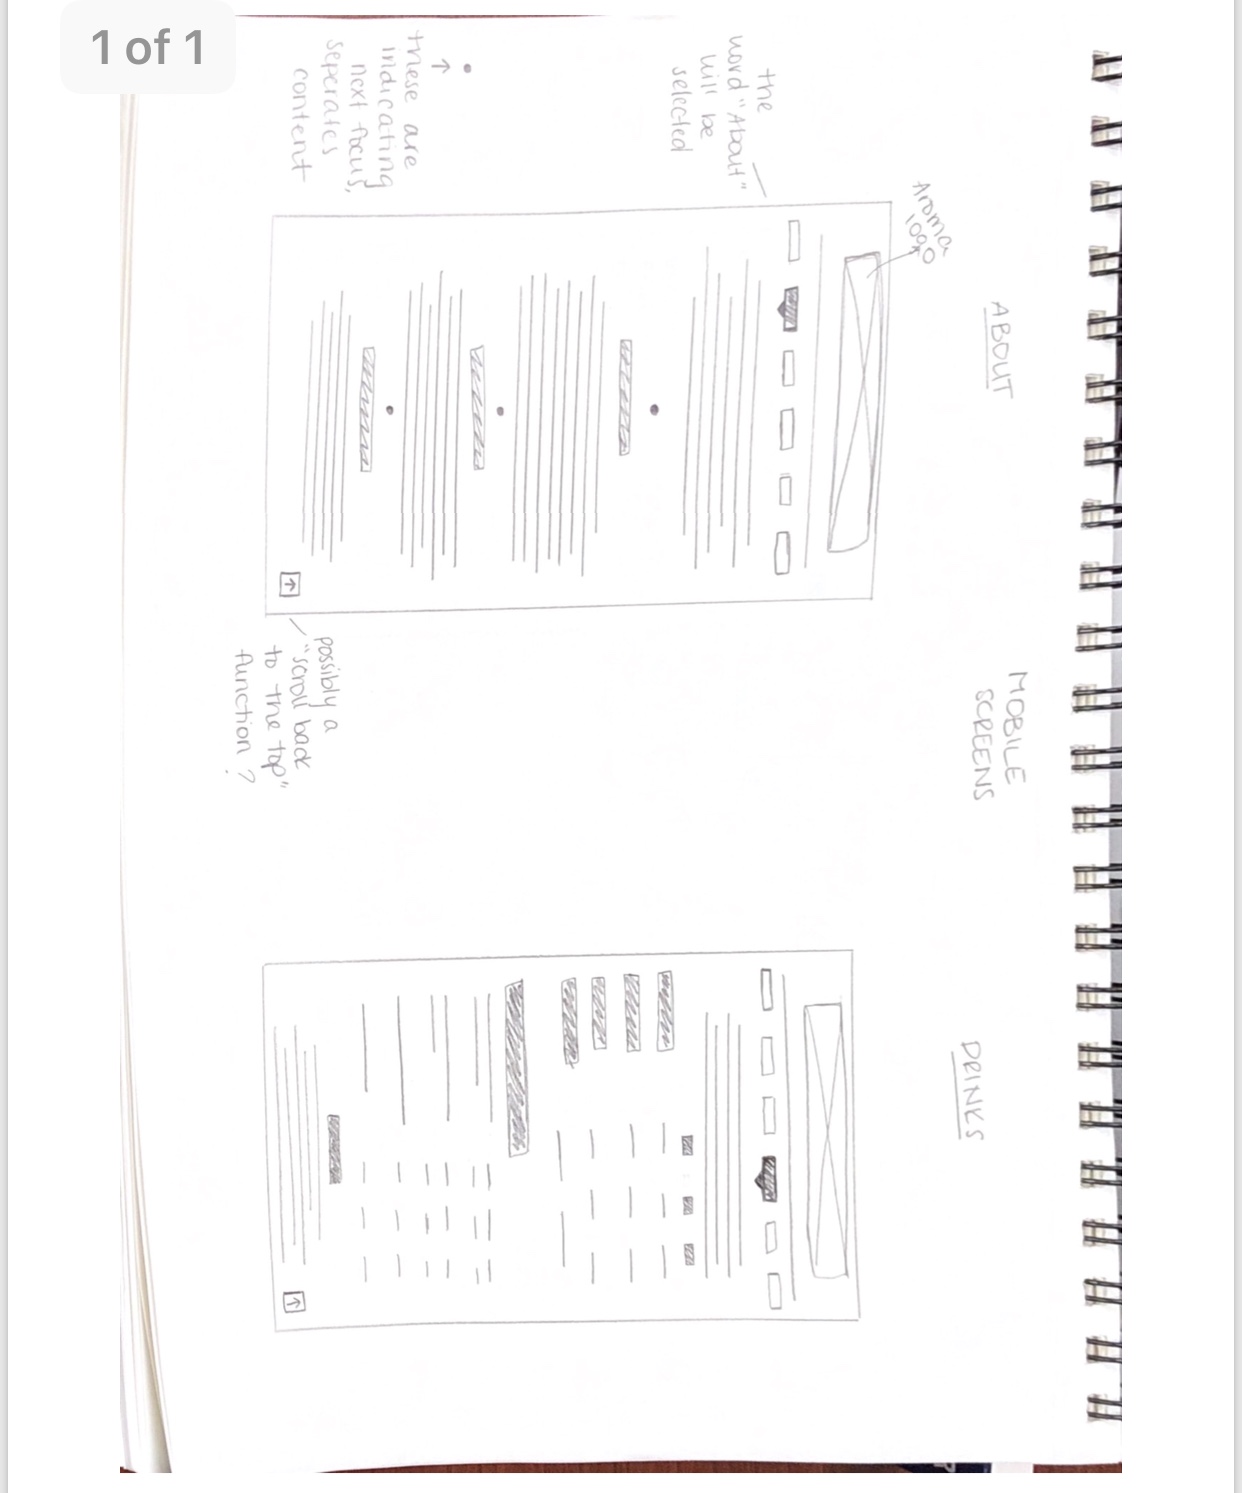 1 of 1
MOBILE
SCREENS
ABOUT
Aroma
logo
the
word "About"
will be
selected
these are
indicating
next focus,
seperates
content
possibly a
"scroll back
to the top"
function?
DRINKS